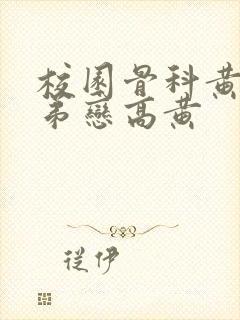 校園骨科黃
弟戀高黃
從伊